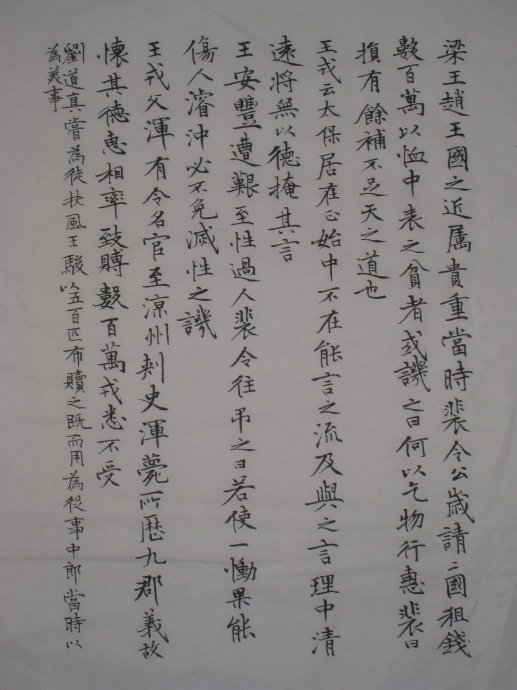 梁王趙王國之近属貴重當時裴令公歲請二國租錢
數百萬以恤中表之貧者或譏之曰何以乞物行惠裴曰
損有餘補不足天之道也
王戎云太保居在正始中不在能言之流及與之言理中清
遠將無以德掩其言
王安豐遭艱至性過人裴令往弔之曰若使一慟果能
傷人濬沖必不免滅性之譏
王戎父渾有令名官至涼州刺史渾薨所歷九郡義故
懷其德惠相率致賻數百萬戎悉不受
劉道真嘗為徒扶風王駿以五百匹布贖之既而用為從事中郎當時以
為美事